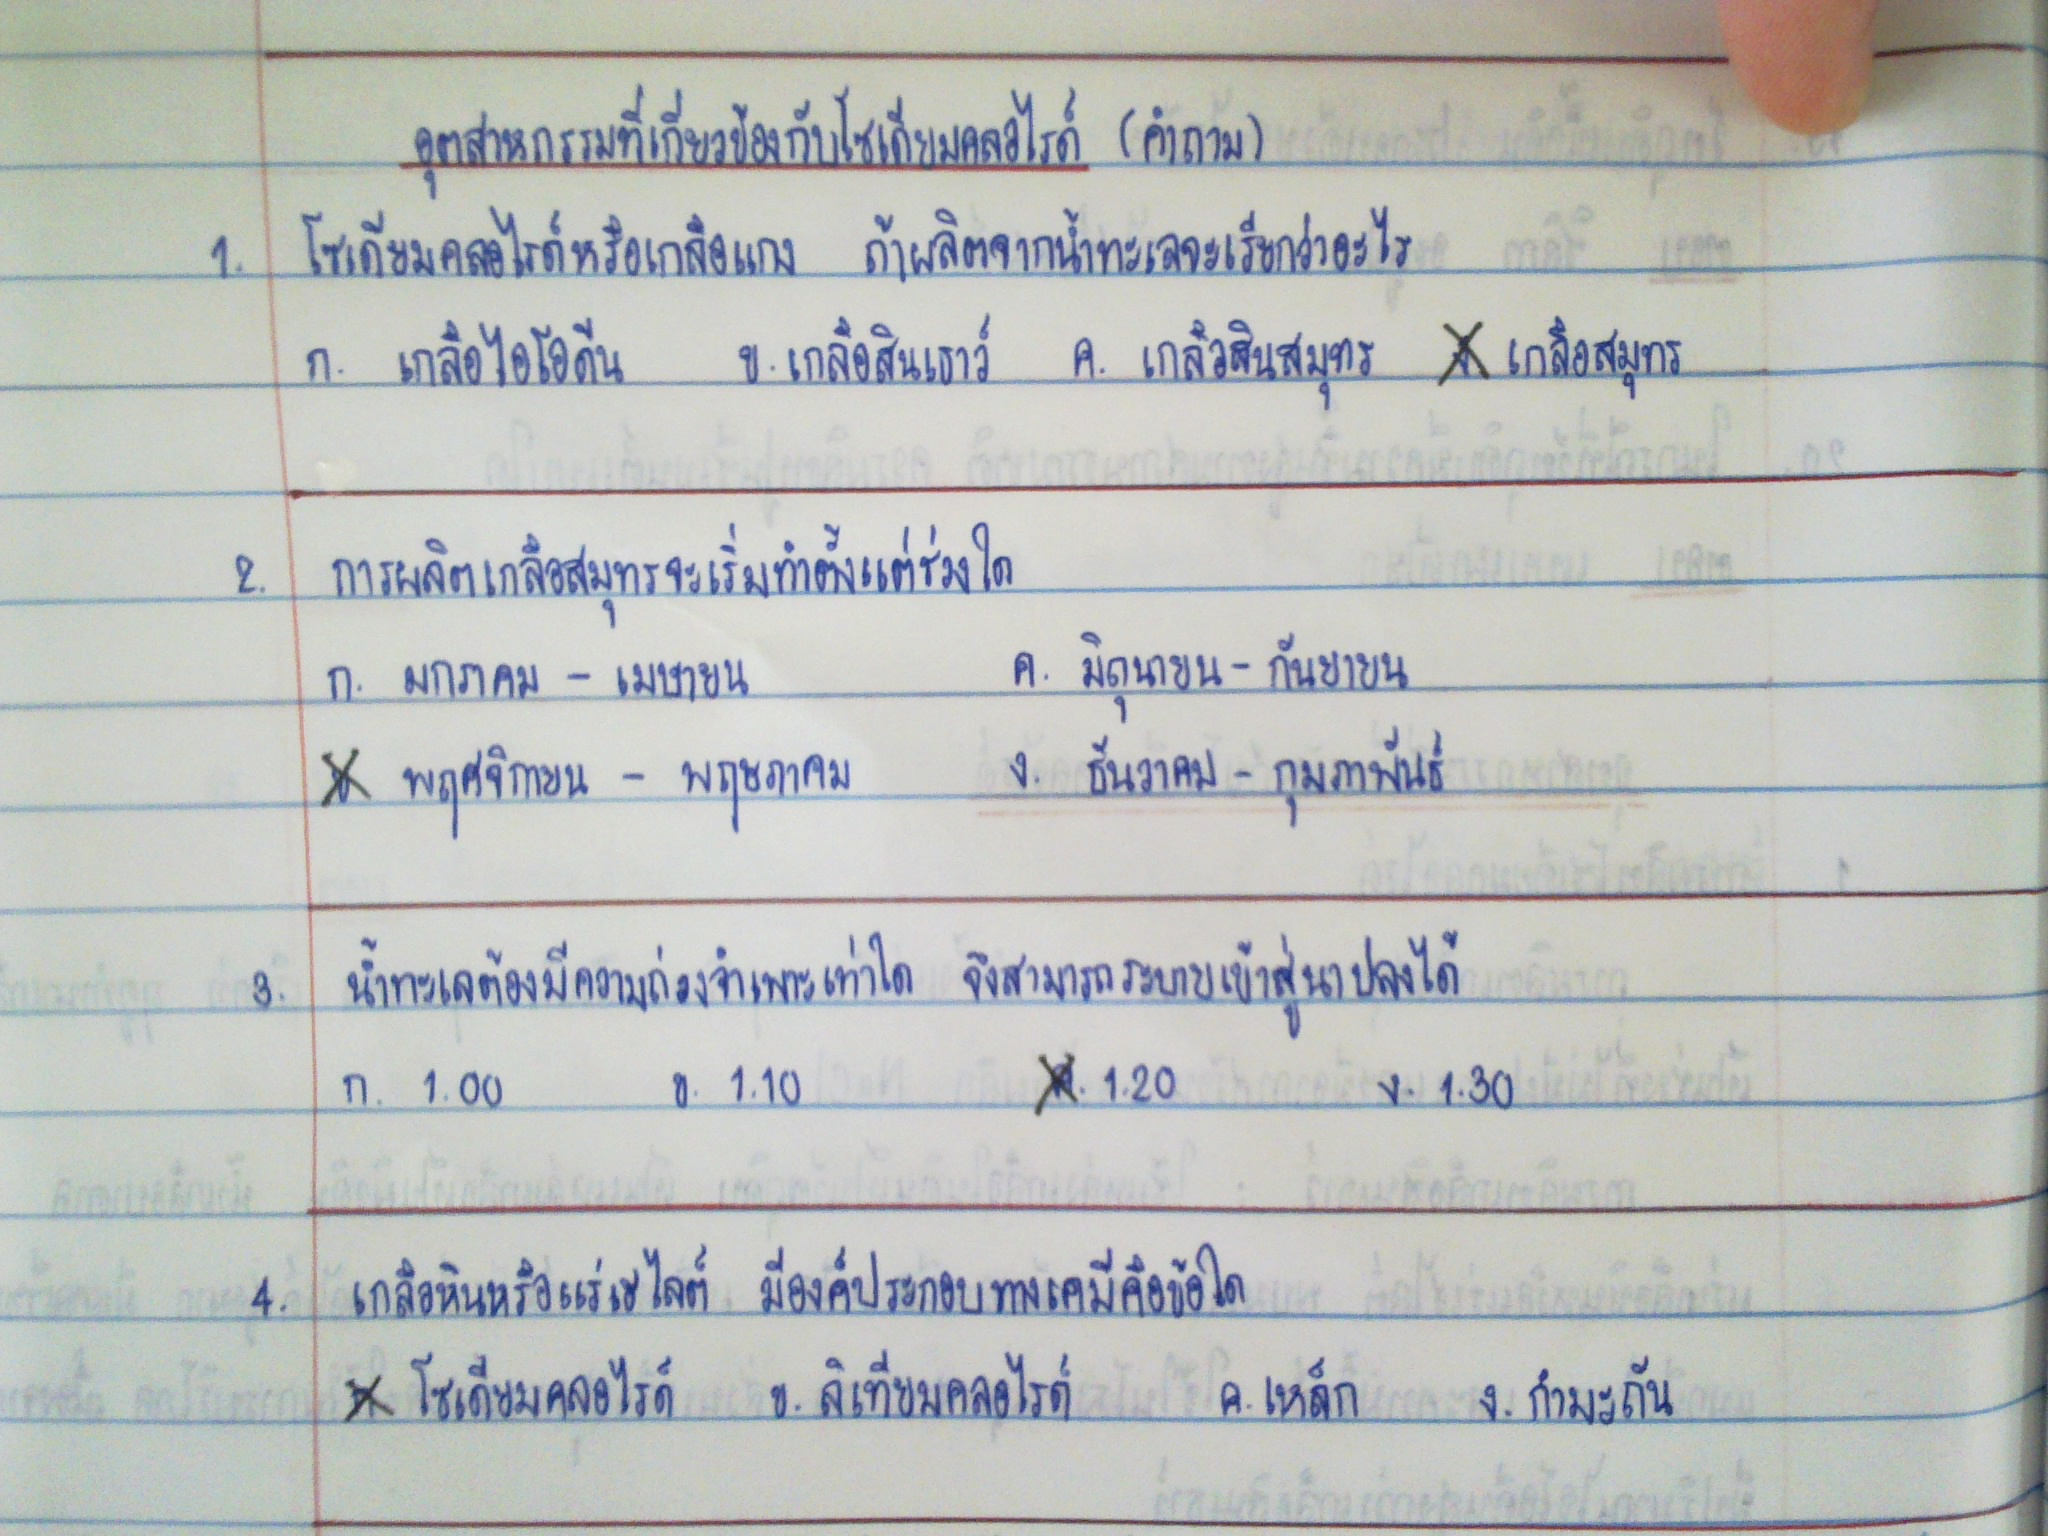 อุตสาหกรรมที่เกี่ยวข้องกับโซเดียมคลอไรด์ (คำถาม)
1. โซเดียมคลอไรด์หรือเกลือแกง ถ้าผลิตจากน้ำทะเลจะเรียกว่าอะไร
ก. เกลือไอโอดีน ข. เกลือสินเธาว์ ค. เกลือสินสมุทร เกลือสมุทร
2. การผลิตเกลือสมุทรจะเริ่มทำตั้งแต่ช่วงใด
ก. มกราคม - เมษายน ค. มิถุนายน - กันยายน
พฤศจิกายน - พฤษภาคม ง. ธันวาคม - กุมภาพันธ์
3. น้ำทะเลต้องมีความถ่วงจำเพาะเท่าใด จึงสามารถระบายเข้าสู่นาปลงได้
ก. 1.00 ข. 1.10 ค. 1.20 ง. 1.30
4. เกลือหินหรือแร่เฮไลต์ มีองค์ประกอบทางเคมีคือข้อใด
โซเดียมคลอไรด์ ข. ลิเทียมคลอไรด์ ค. เหล็ก ง. กำมะถัน